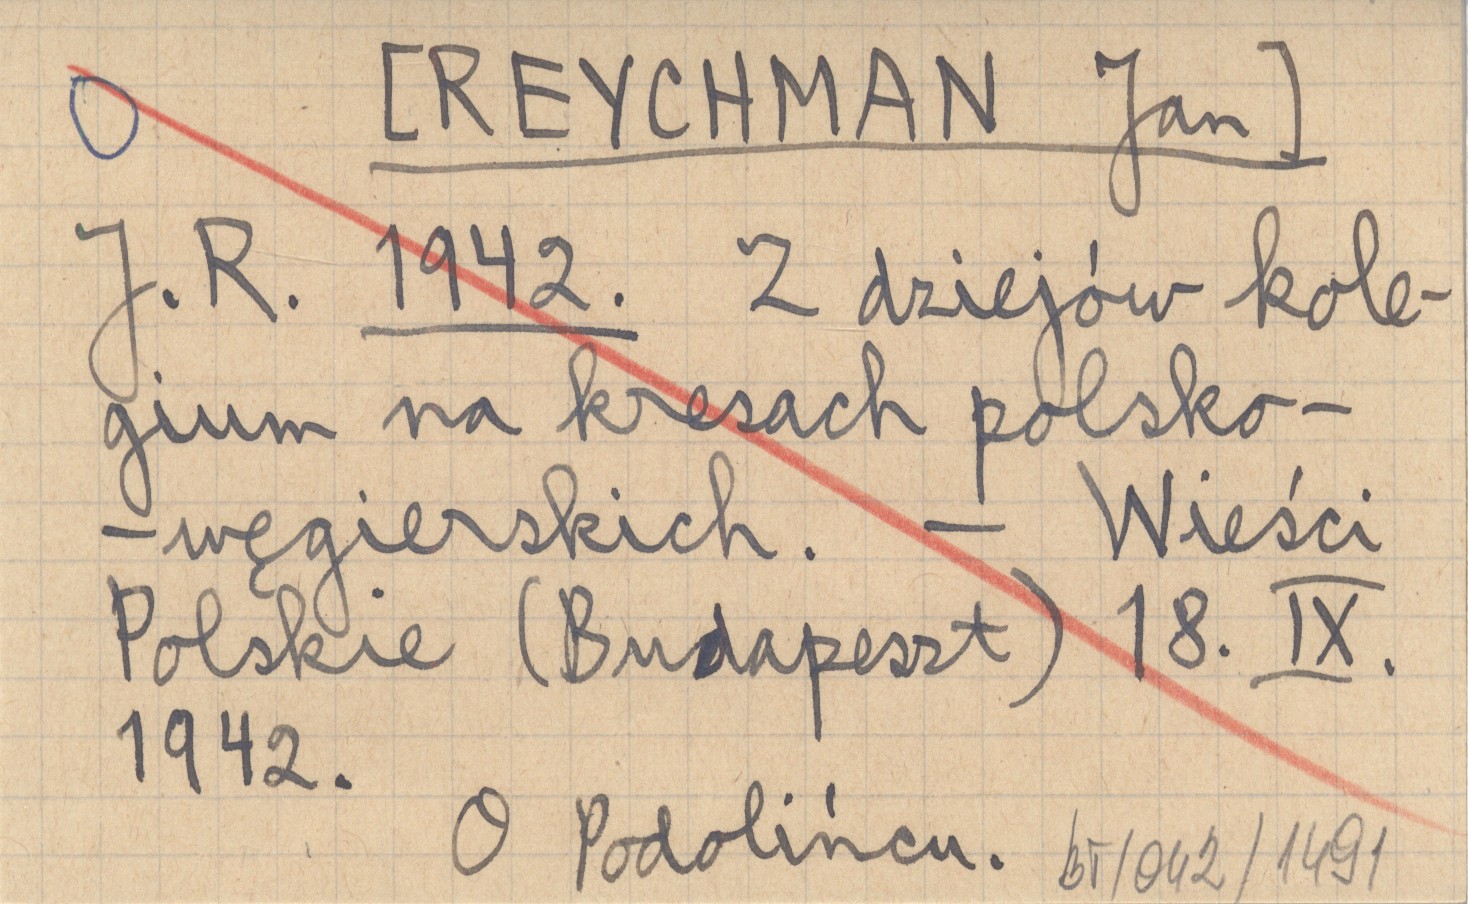 [REYCHMAN Jan]
J. R. 1942. Z dziejów kole-
gium na kresach polsko-
-węgierskich. — Wieści
Polskie (Budapeszt) 18. IX.
1942.
O Podolińcu.
bT/042/1491